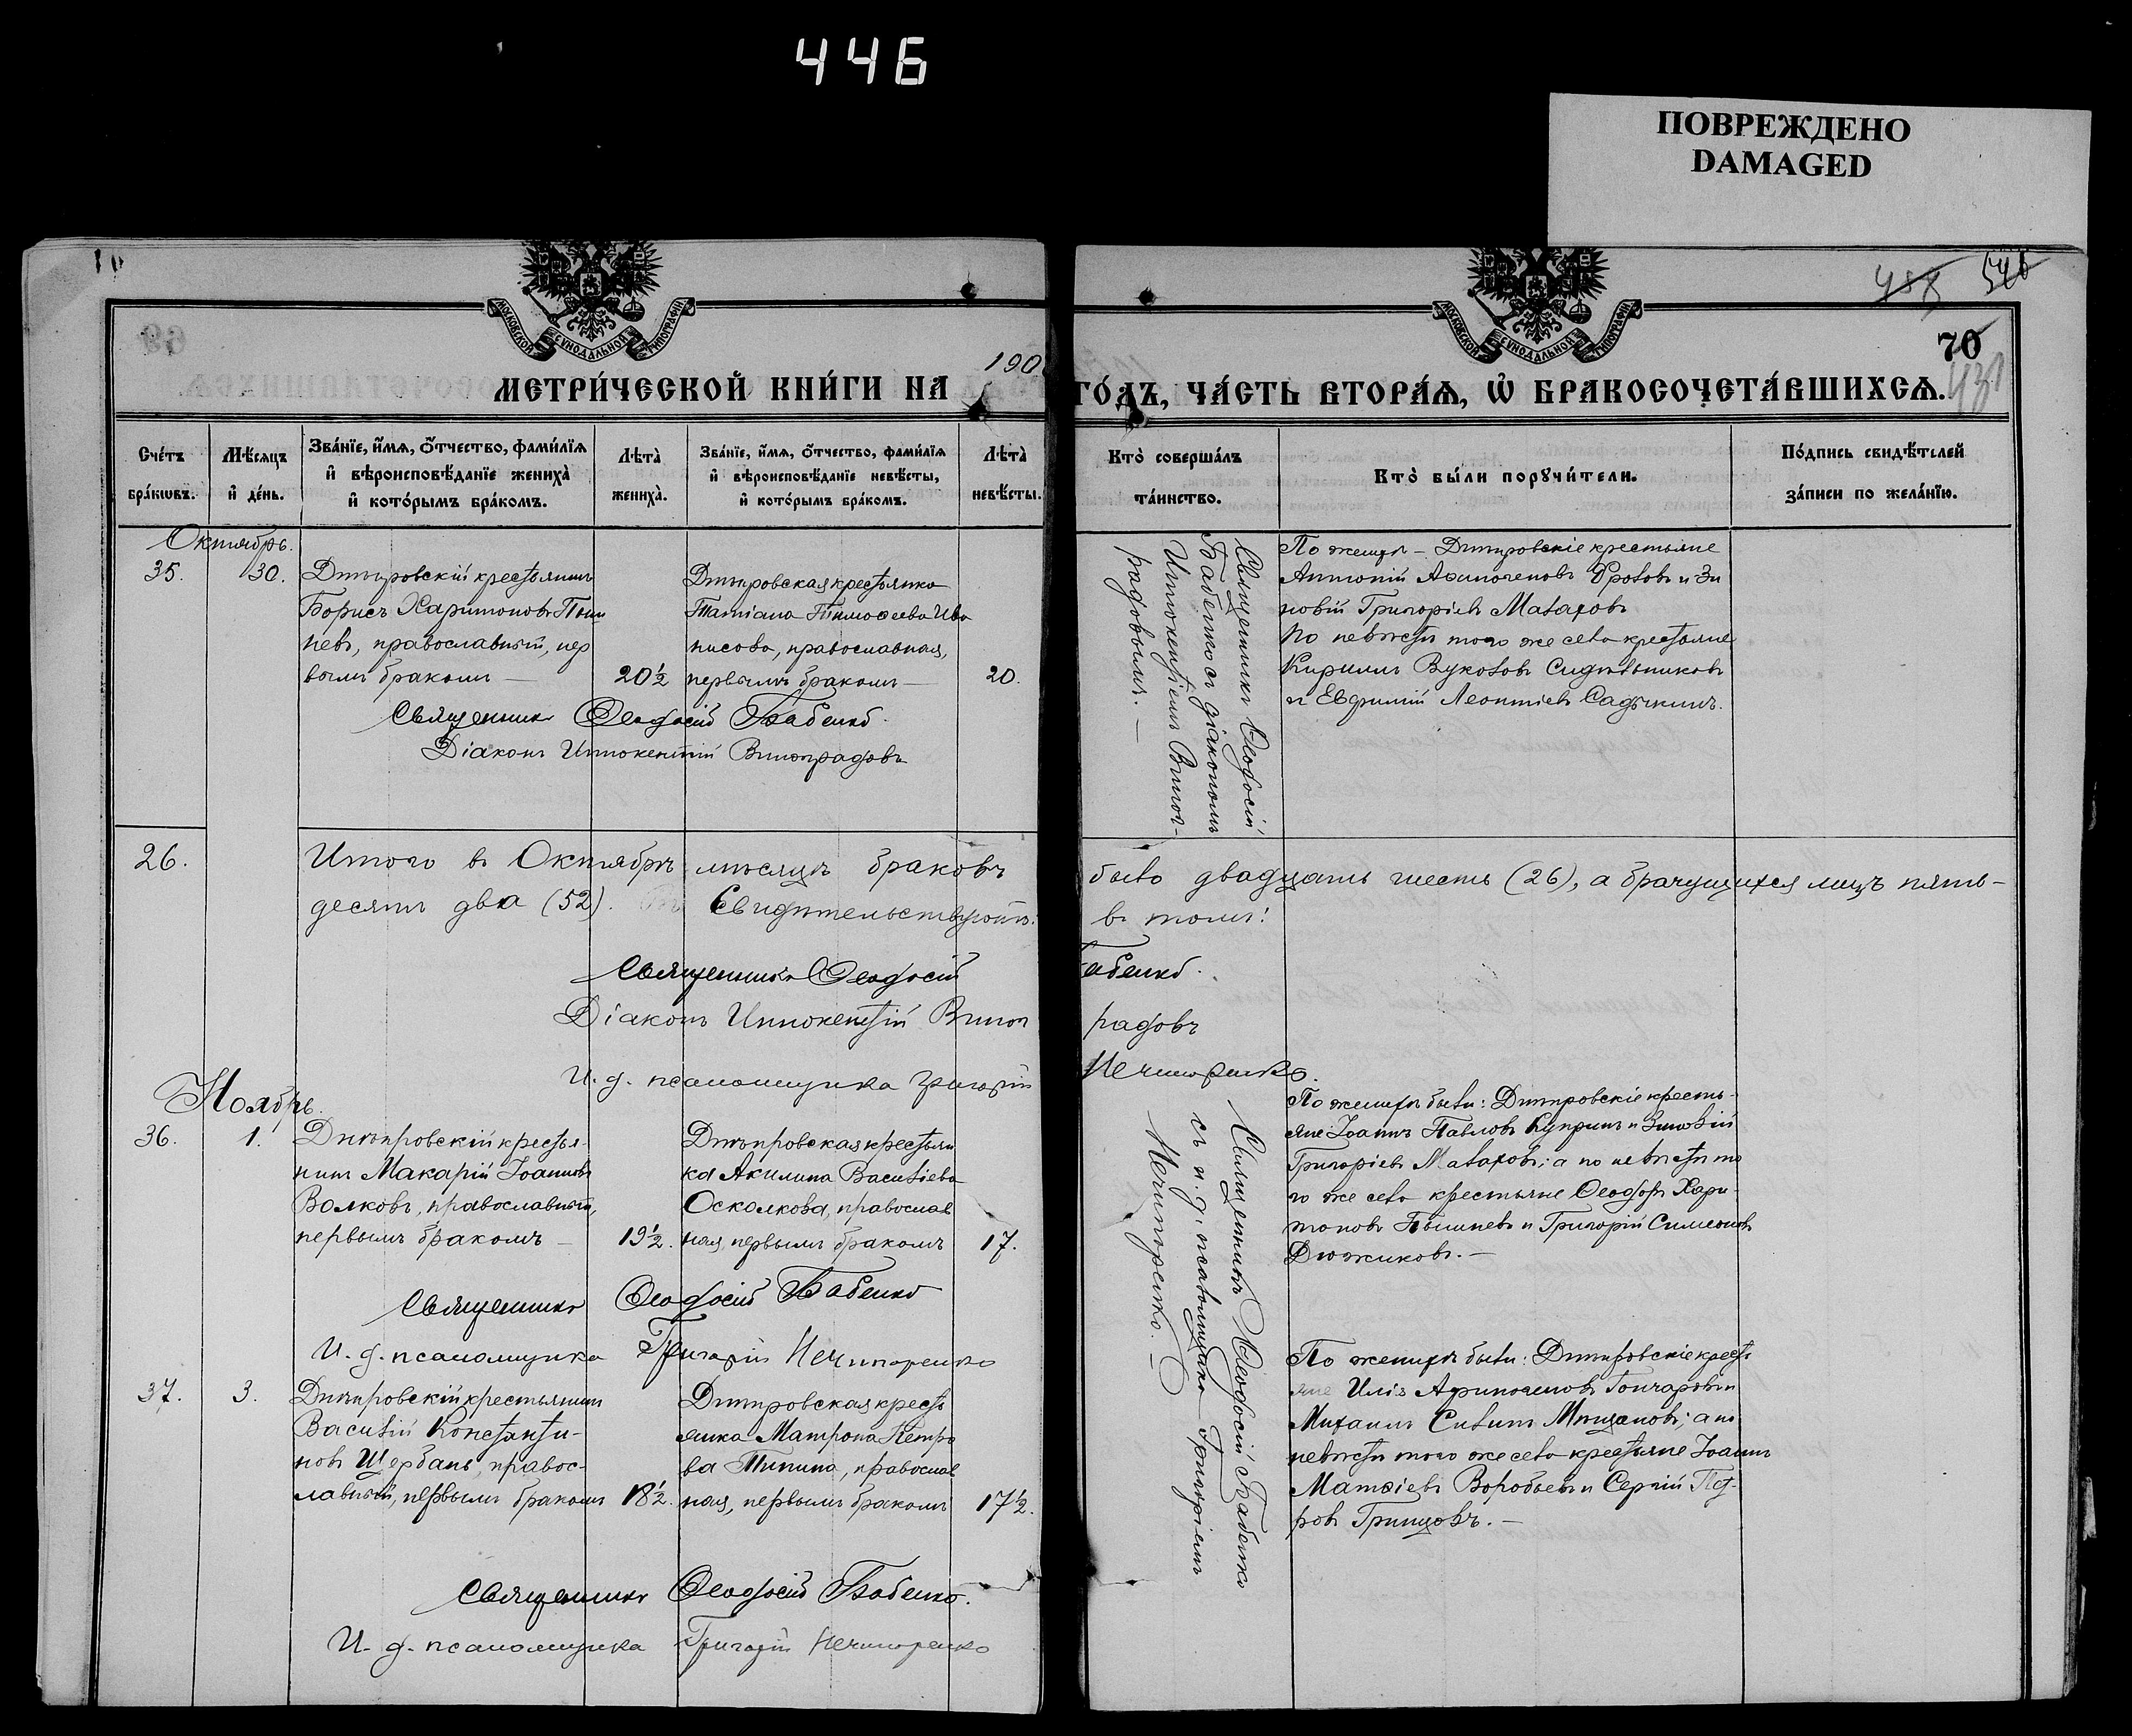 446
ПОВРЕЖДЕНО
DAMAGED
МОСКОВСКОЙ СѴНОДАЛЬНОЙ ТИПОГРАФІИ
МОСКОВСКОЙ СѴНОДАЛЬНОЙ ТИПОГРАФІИ
458 546
70
МЕТРИ́ЧЕСКОЙ КНИ́ГИ НА 190
ГО́ДЪ, ЧА́СТЬ ВТОРА́Ѧ, Ѽ БРАКОСОЧЕТА́ВШИХСѦ.
Сче́тъ бра́кѡвъ.
Мѣ́сяцъ и҆ де́нь.
Зва́нїе, и҆́мѧ, ѻ҆́тчество, фами́лїѧ и҆ вѣроисповѣ́данїе жениха̀ и҆ кото́рымъ бра́комъ.
Лѣта̀ жениха̀.
Зва́нїе, и҆́мѧ, ѻ҆́тчество, фами́лїѧ и҆ вѣроисповѣ́данїе невѣ́сты, и҆ кото́рымъ бра́комъ.
Лѣта̀ невѣ́сты.
Кто̀ соверша́лъ та́инство.
Кто̀ бы́ли порꙋчи́тели.
По́дпись свидѣ́телей за́писи по жела́нїю.
Октябрь.
35. 30.
Днѣпровскій крестьянинъ
Борисъ Харитоновъ Пыш
невъ, православный, пер
вымъ бракомъ —
20½
Днѣпровская крестьянка
Татіана Тимоѳеева Ива
нисова, православная,
первымъ бракомъ —
20.
Священникъ Ѳеодосій Бабенко.
Діаконъ Иннокентій Виноградовъ
Священникъ Ѳеодосій
Бабенко съ діакономъ
Иннокентіемъ Виног-
радовымъ. —
По женихѣ — Днѣпровскіе крестьяне
Антоній Фроловъ и Зи
новій Григоріевъ Малаховъ
по невѣстѣ того же села крестьяне
Кириллъ Сидѣльниковъ
и Евфимій Леонтіевъ Садчкинъ.
26.
Итого въ Октябрѣ мѣсяцѣ браковъ
было двадцать шесть (26), а брачущихся лицъ пять-
десятъ два (52). Свидѣтельствуютъ:
въ томъ:
Священникъ Ѳеодосій Бабенко.
Діаконъ Иннокентій Виног радовъ
И. д. псаломщика Григорій Нечипоренко.
Ноябрь.
36. 1.
Днѣпровскій крестья-
нинъ Макарій Іоанновъ
Волковъ, православный,
первымъ бракомъ —
19½.
Днѣпровская крестьян
ка Акилина Василіева
Осколкова, православ
ная, первымъ бракомъ
17.
Священникъ Ѳеодосій Бабенко
И. д. псаломщика Григорій Нечипоренко
По женихѣ были: Днѣпровскіе кресть-
яне: Іоаннъ Павловъ Купринъ и Зиновій
Григоріевъ Малаховъ; а по невѣстѣ то
го же села крестьяне Ѳеодоръ Хари-
тоновъ Пышневъ и Григорій Симеоновъ
Дюжиковъ. —
Священникъ Ѳеодосій Бабенко
съ и. д. псаломщика Григоріемъ
Нечипоренко. —
37. 3.
Днѣпровскій крестьянинъ
Василій Константи-
новъ Щербань, правос-
лавный, первымъ бракомъ
18½.
Днѣпровская кресть
янка Матрона Петро
ва Типина, православ
ная, первымъ бракомъ
17½.
По женихѣ были: Днѣпровскіе кресть
яне Илія Гончаровъ и
Михаилъ Мищановъ; а по
невѣстѣ того же села крестьяне Іоаннъ
Матѳіевъ Воробьевъ и Сергій Пет-
ровъ Гринцовъ. —
Священникъ Ѳеодосій Бабенко.
И. д. псаломщика Григорій Нечипоренко